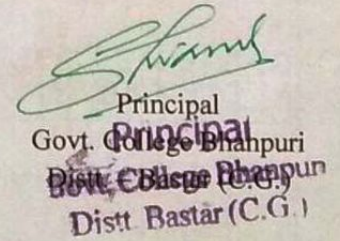 Principal
Govt. College Bhanpuri
Distt. Bastar (C.G.)
Principal
Govt. College Bhanpuri
Distt. Bastar (C.G.)